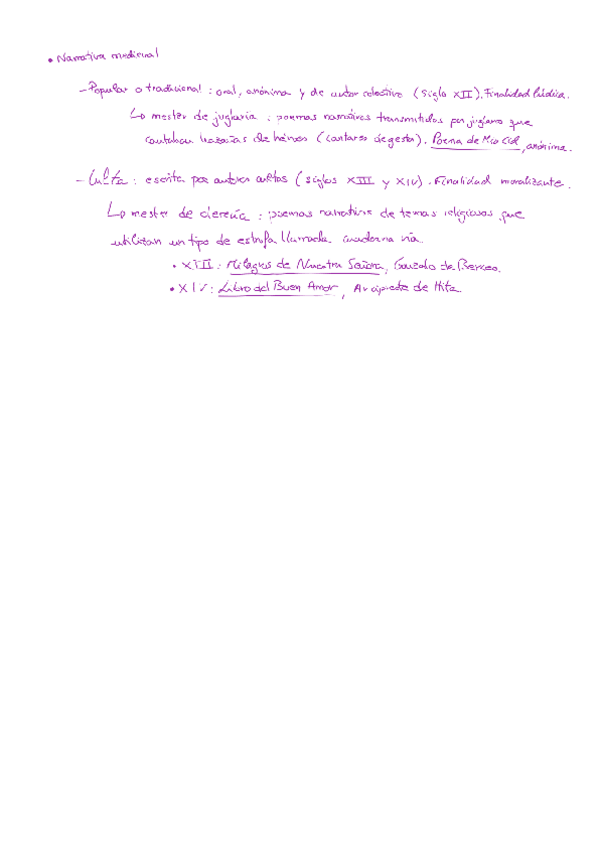 • Narrativa medieval
- Popular o tradicional : oral, anónima y de autor colectivo (siglo XII). Finalidad lúdica.
↳ mester de juglaría : poemas narrativos transmitidos por juglares que
cantaban hazañas de héroes (cantares de gesta). Poema de Mio Cid, anónima.
- Culta : escrita por autores cultos (siglos XIII y XIV). Finalidad moralizante.
↳ mester de clerecía : poemas narrativos de temas religiosos que
utilizan un tipo de estrofa llamada cuaderna vía.
• XIII : Milagros de Nuestra Señora, Gonzalo de Berceo.
• XIV : Libro del Buen Amor, Arcipreste de Hita.